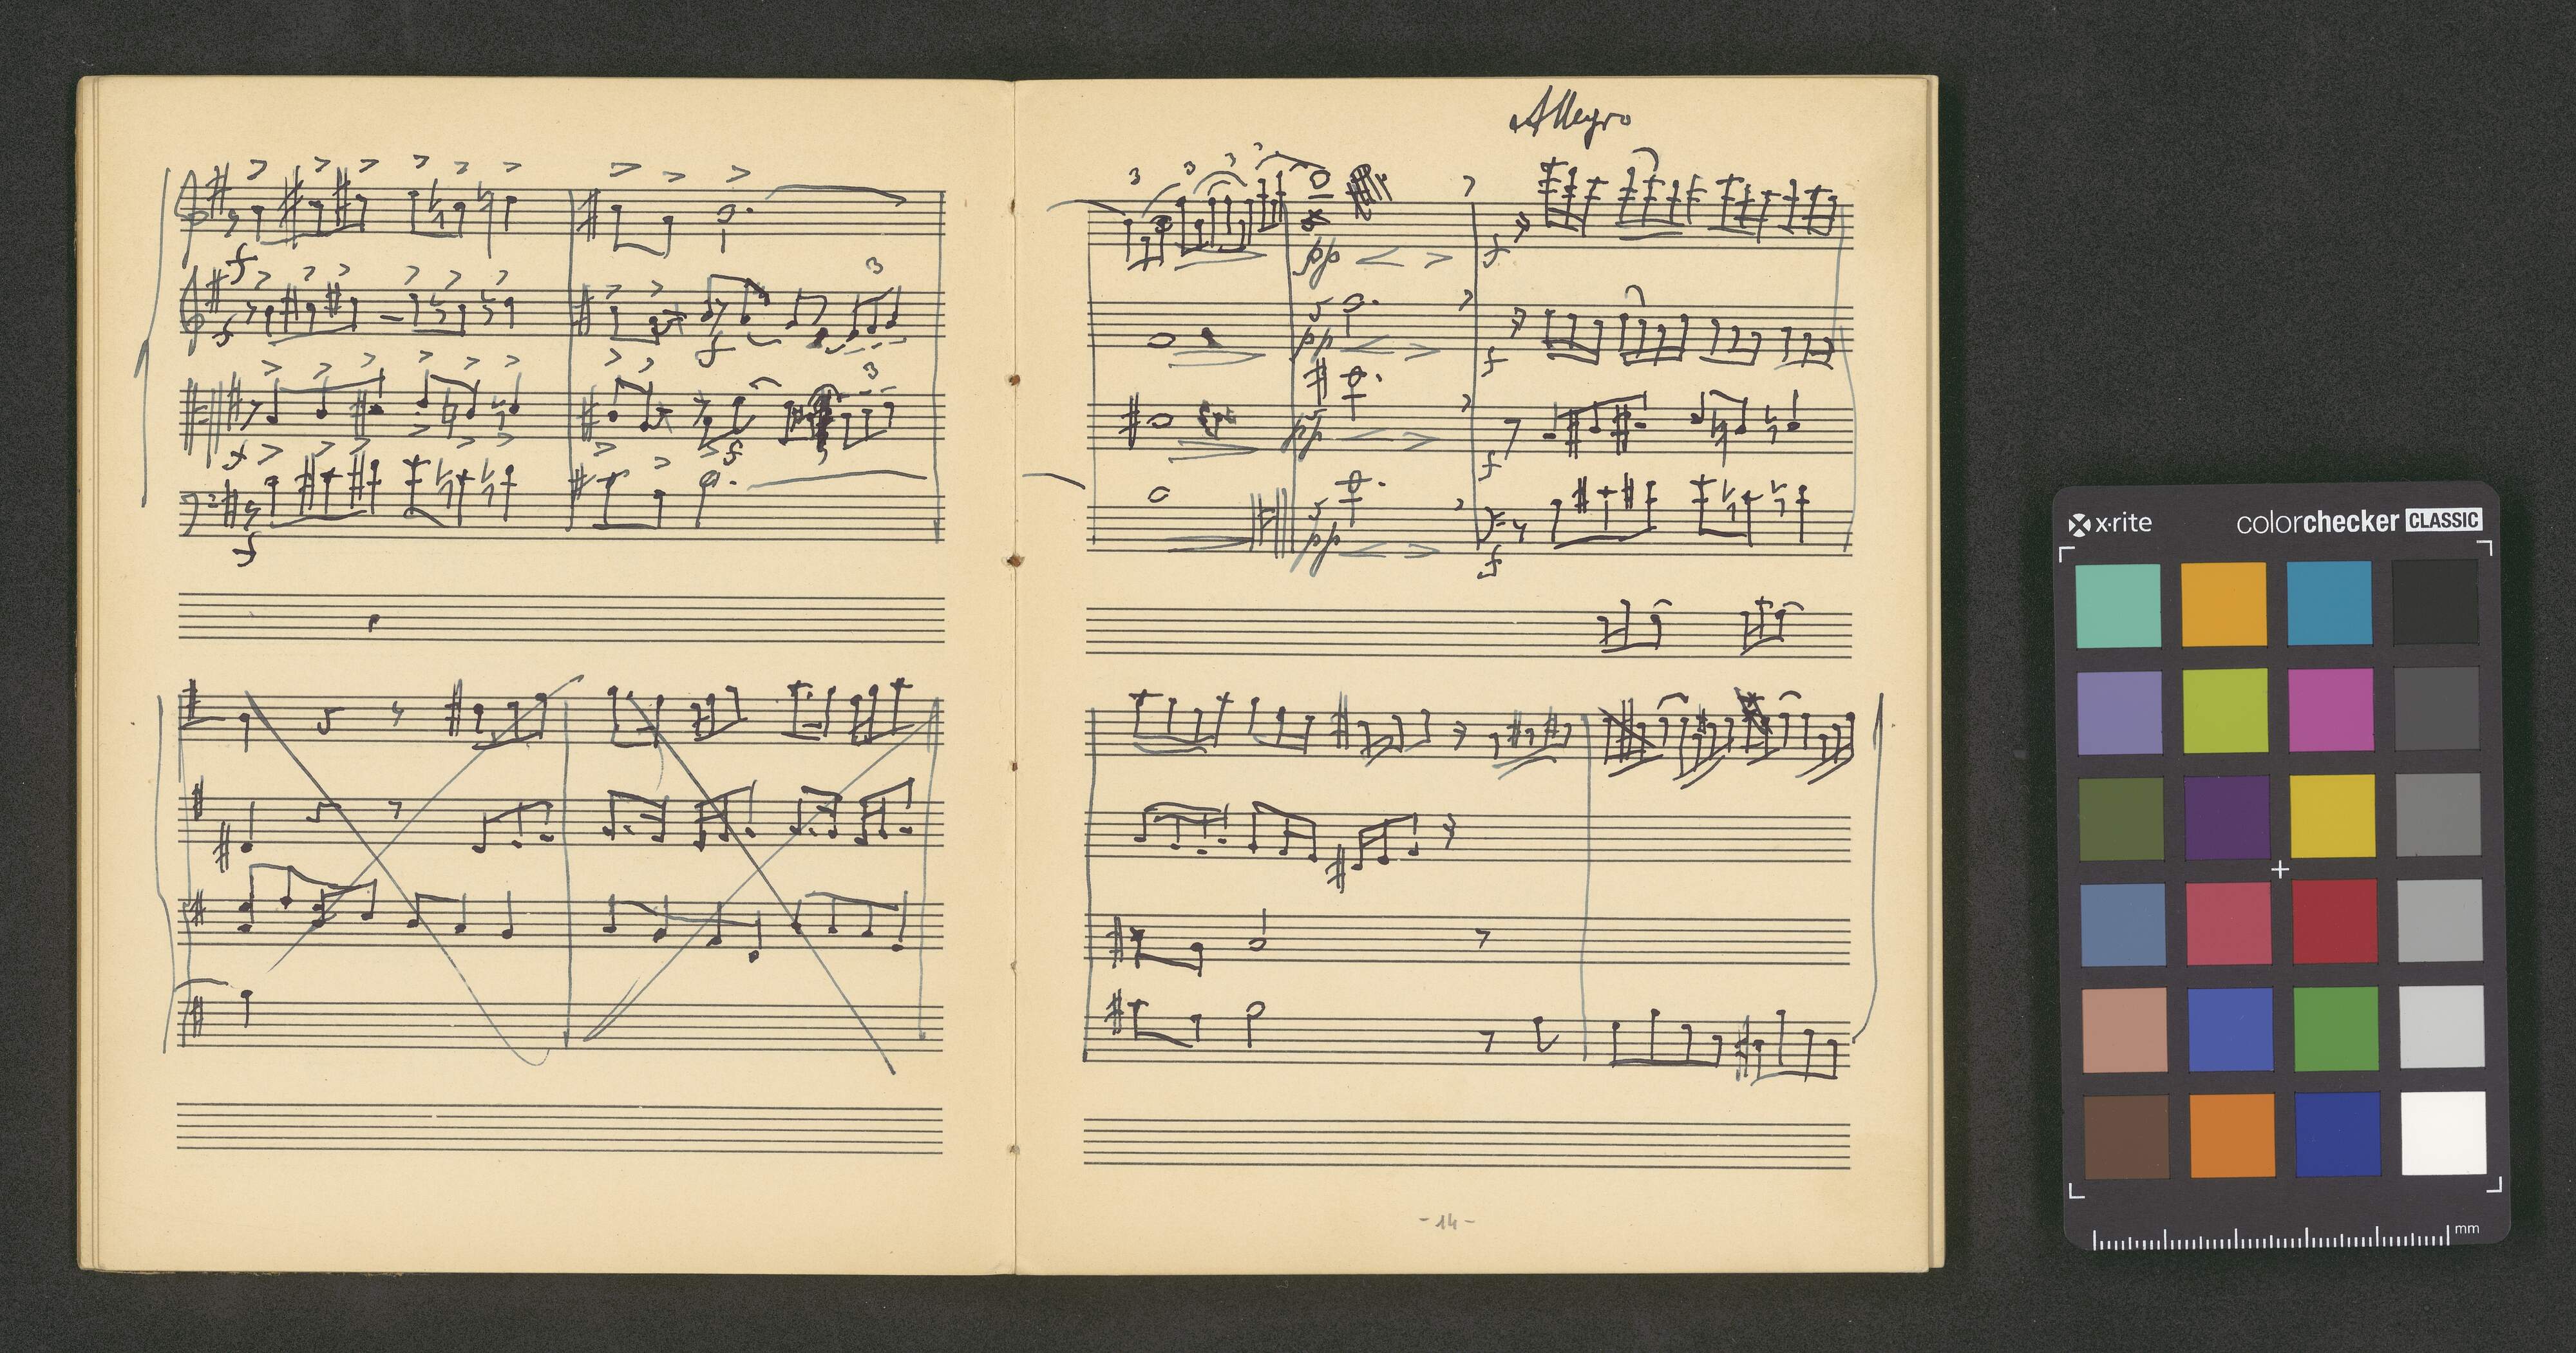 Allegro
3 3 3 3
f
f
3
f
3
f
f
f
f
pp
f
pp
f
pp
f
pp
f
-14-
x-rite
colorchecker CLASSIC
mm